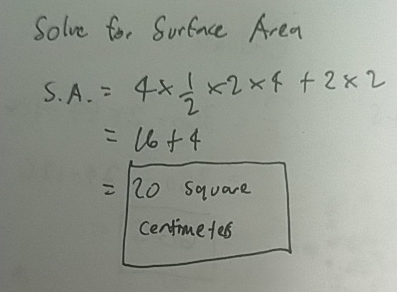 Solve for Surface Area
S.A. = 4 × 1/2 × 2 × 4 + 2 × 2
= 16 + 4
= 20 square
centimeters